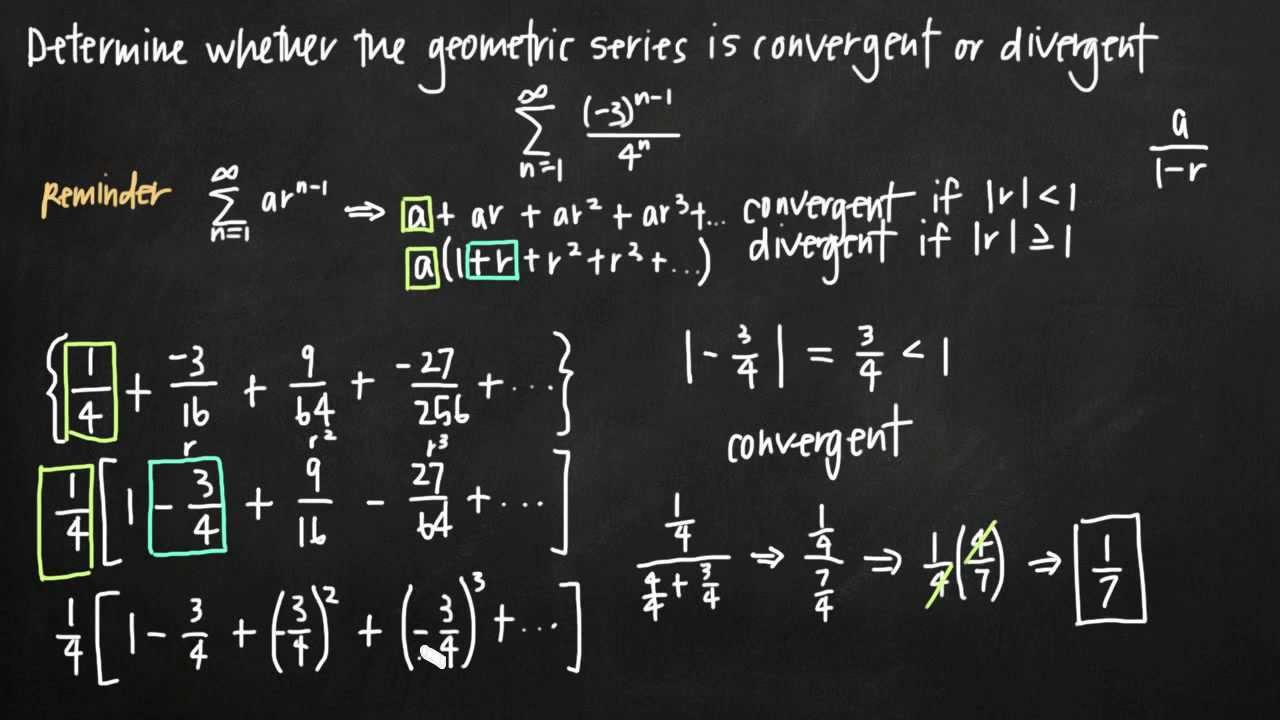 Determine whether the geometric series is convergent or divergent
∞ Σ n=1 (-3)^(n-1) / 4^n
a / (1-r)
Reminder ∞ Σ n=1 ar^(n-1) ⇒ a + ar + ar² + ar³ + ... convergent if |r| < 1
a(1 + r + r² + r³ + ...) divergent if |r| ≥ 1
{1/4 + -3/16 + 9/64 + -27/256 + ...}
r r² r³
1/4 [1 - 3/4 + 9/16 - 27/64 + ...]
1/4 [1 - 3/4 + (-3/4)² + (-3/4)³ + ...]
|-3/4| = 3/4 < 1
convergent
(1/4) / (4/4 + 3/4) ⇒ (1/4) / (7/4) ⇒ 1/4 (4/7) ⇒ 1/7